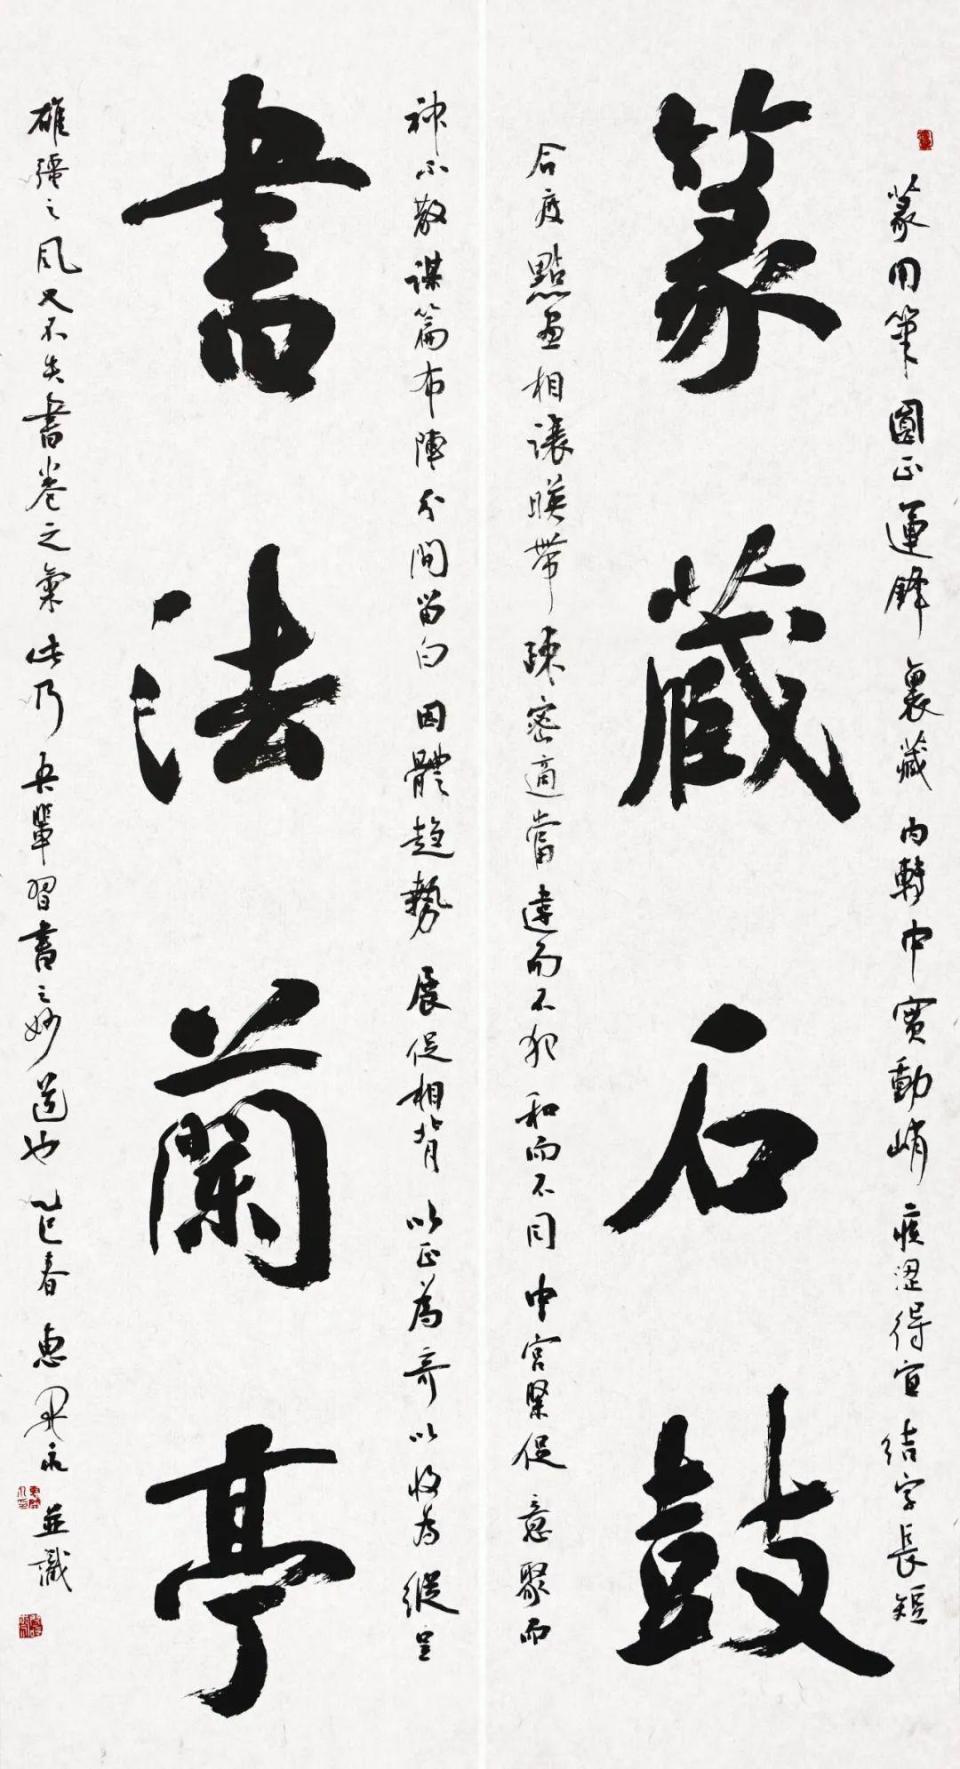 篆用筆圓正運鋒裹藏內轉中實動峭疾澀得宜結字長短
篆藏石鼓
合度點畫相讓暎帶疎密適當違而不犯和而不同中宮緊促意聚而
神不散謀篇布陣分間留白因體趨勢展促相背以正為奇以收為縱呈
書法蘭亭
雄彊之風又不失書卷之氣此乃吾輩習書之妙道也乙巳春惠永並識